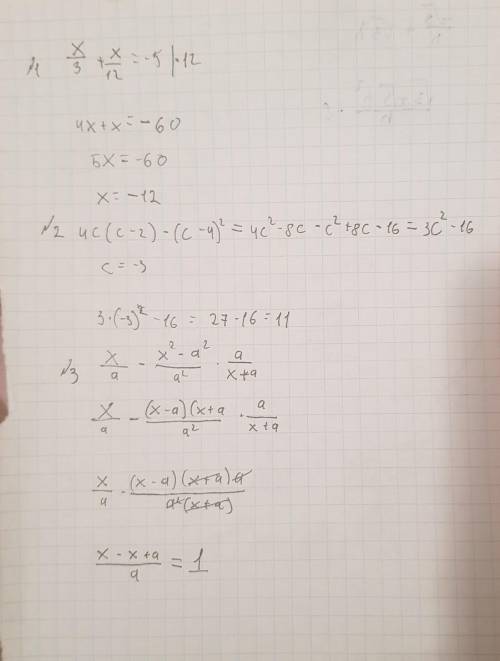 №1 x/3 + x/12 = -5 | · 12
4x + x = -60
5x = -60
x = -12
№2 4c(c-2) - (c-4)² = 4c² - 8c - c² + 8c - 16 = 3c² - 16
c = -3
3·(-3)² - 16 = 27 - 16 = 11
№3 x/a - (x² - a²)/a² · a/(x+a)
x/a - (x-a)(x+a/a² · a/(x+a)
x/a - (x-a)(x+a)a/a²(x+a)
(x - x + a)/a = 1